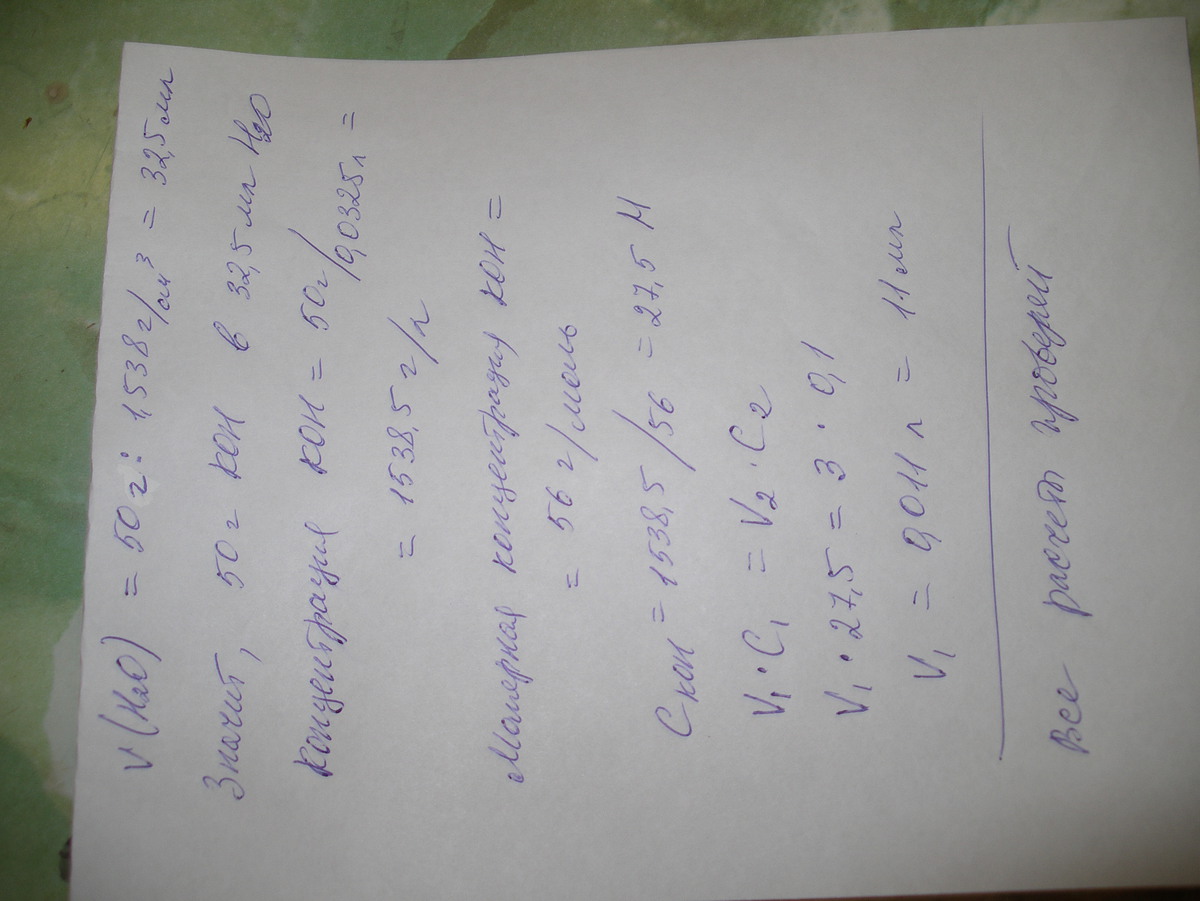 V(H₂O) = 50г : 1,538г/см³ = 32,5мл
Значит, 50г КОН в 32,5мл H₂O
Концентрация КОН = 50г/0,0325л =
= 1538,5г/л
Малерная концентрация КОН =
= 56г/моль
Cкон = 1538,5/56 = 27,5 М
V₁·C₁ = V₂·C₂
V₁·27,5 = 3·0,1
V₁ = 0,011 л = 11мл
Все расчеты проверяй